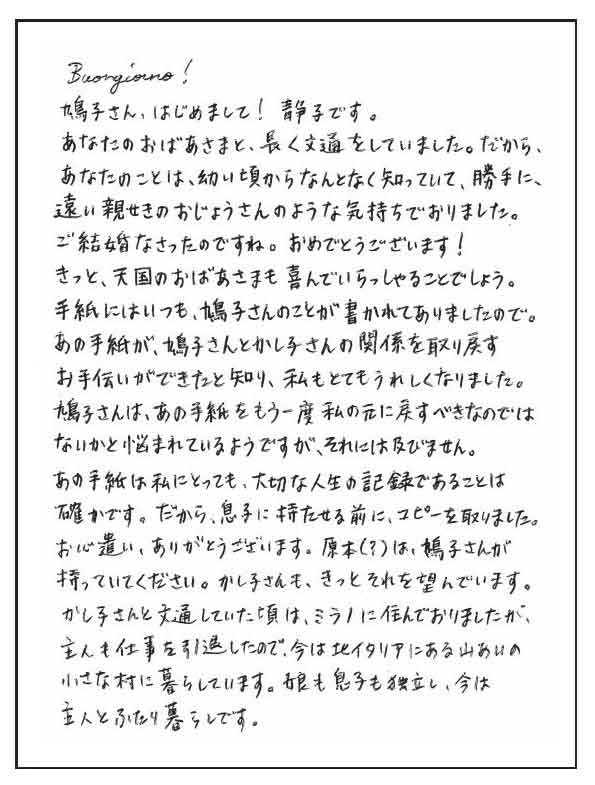 Buongiorno!
鳩子さん、はじめまして! 静子です。
あなたのおばあさまと、長く文通をしていました。だから、
あなたのことは、幼い頃からなんとなく知っていて、勝手に、
遠い親せきのおじょうさんのような気持ちでおりました。
ご結婚なさったのですね。おめでとうございます!
きっと、天国のおばあさまも喜んでいらっしゃることでしょう。
手紙にはいつも、鳩子さんのことが書かれてありましたので。
あの手紙が、鳩子さんとかし子さんの関係を取り戻す
お手伝いができたと知り、私もとてもうれしくなりました。
鳩子さんは、あの手紙をもう一度私の元に戻すべきなのでは
ないかと悩まれているようですが、それには及びません。
あの手紙は私にとっても、大切な人生の記録であることは
確かです。だから、息子に持たせる前に、コピーを取りました。
お心遣い、ありがとうございます。原本(?)は、鳩子さんが
持っていてください。かし子さんも、きっとそれを望んでいます。
かし子さんと文通していた頃は、ミラノに住んでおりましたが、
主人も仕事を引退したので、今は北イタリアにある山あいの
小さな村に暮らしています。娘も息子も独立し、今は
主人とふたり暮らしです。